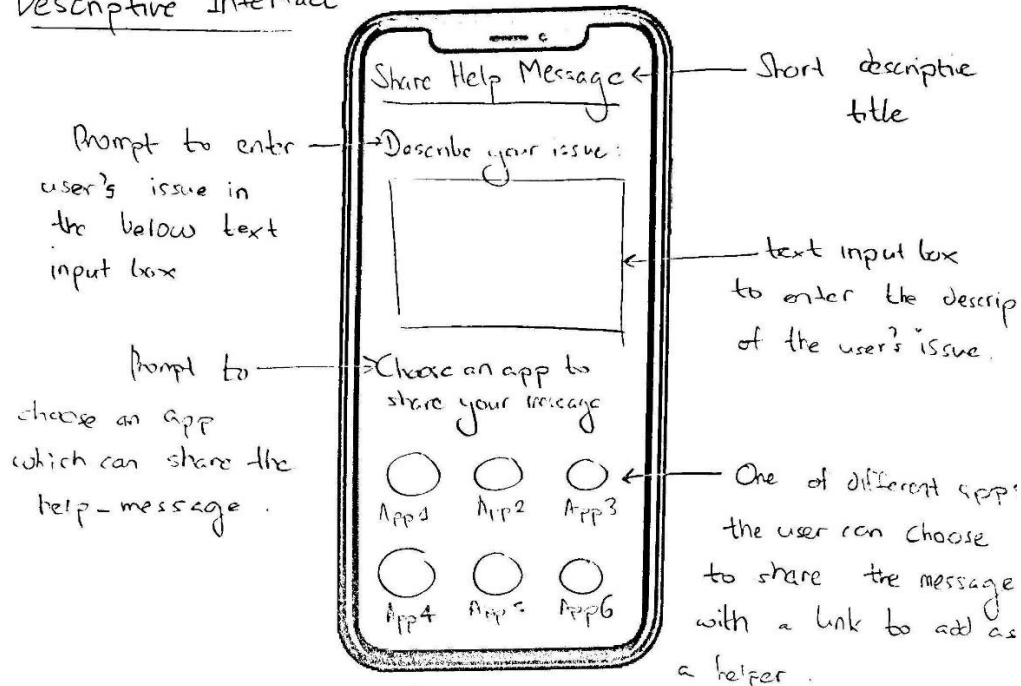 Descriptive Interface
Share Help Message
Short descriptive
title
Prompt to enter
user's issue in
the below text
input box
Describe your issue:
text input box
to enter the descrip
of the user's issue.
Prompt to
choose an app
which can share the
help-message.
Choose an app to
share your message
App1 App2 App3
App4 App5 App6
One of different apps
the user can choose
to share the message
with a link to add as
a helper.